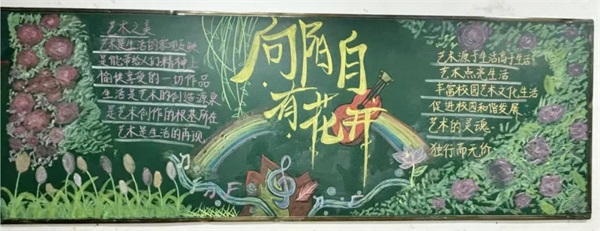 艺术之美
艺术是生活的客观反映
是能带给人们精神上
愉快享受的一切作品
生活是艺术的创造源泉
是艺术创作的根基所在
艺术是生活的再现
向阳自
有花开
艺术源于生活高于生活
艺术点亮生活
丰富校园艺术文化生活
促进校园和谐发展
艺术的灵魂
独行而无价